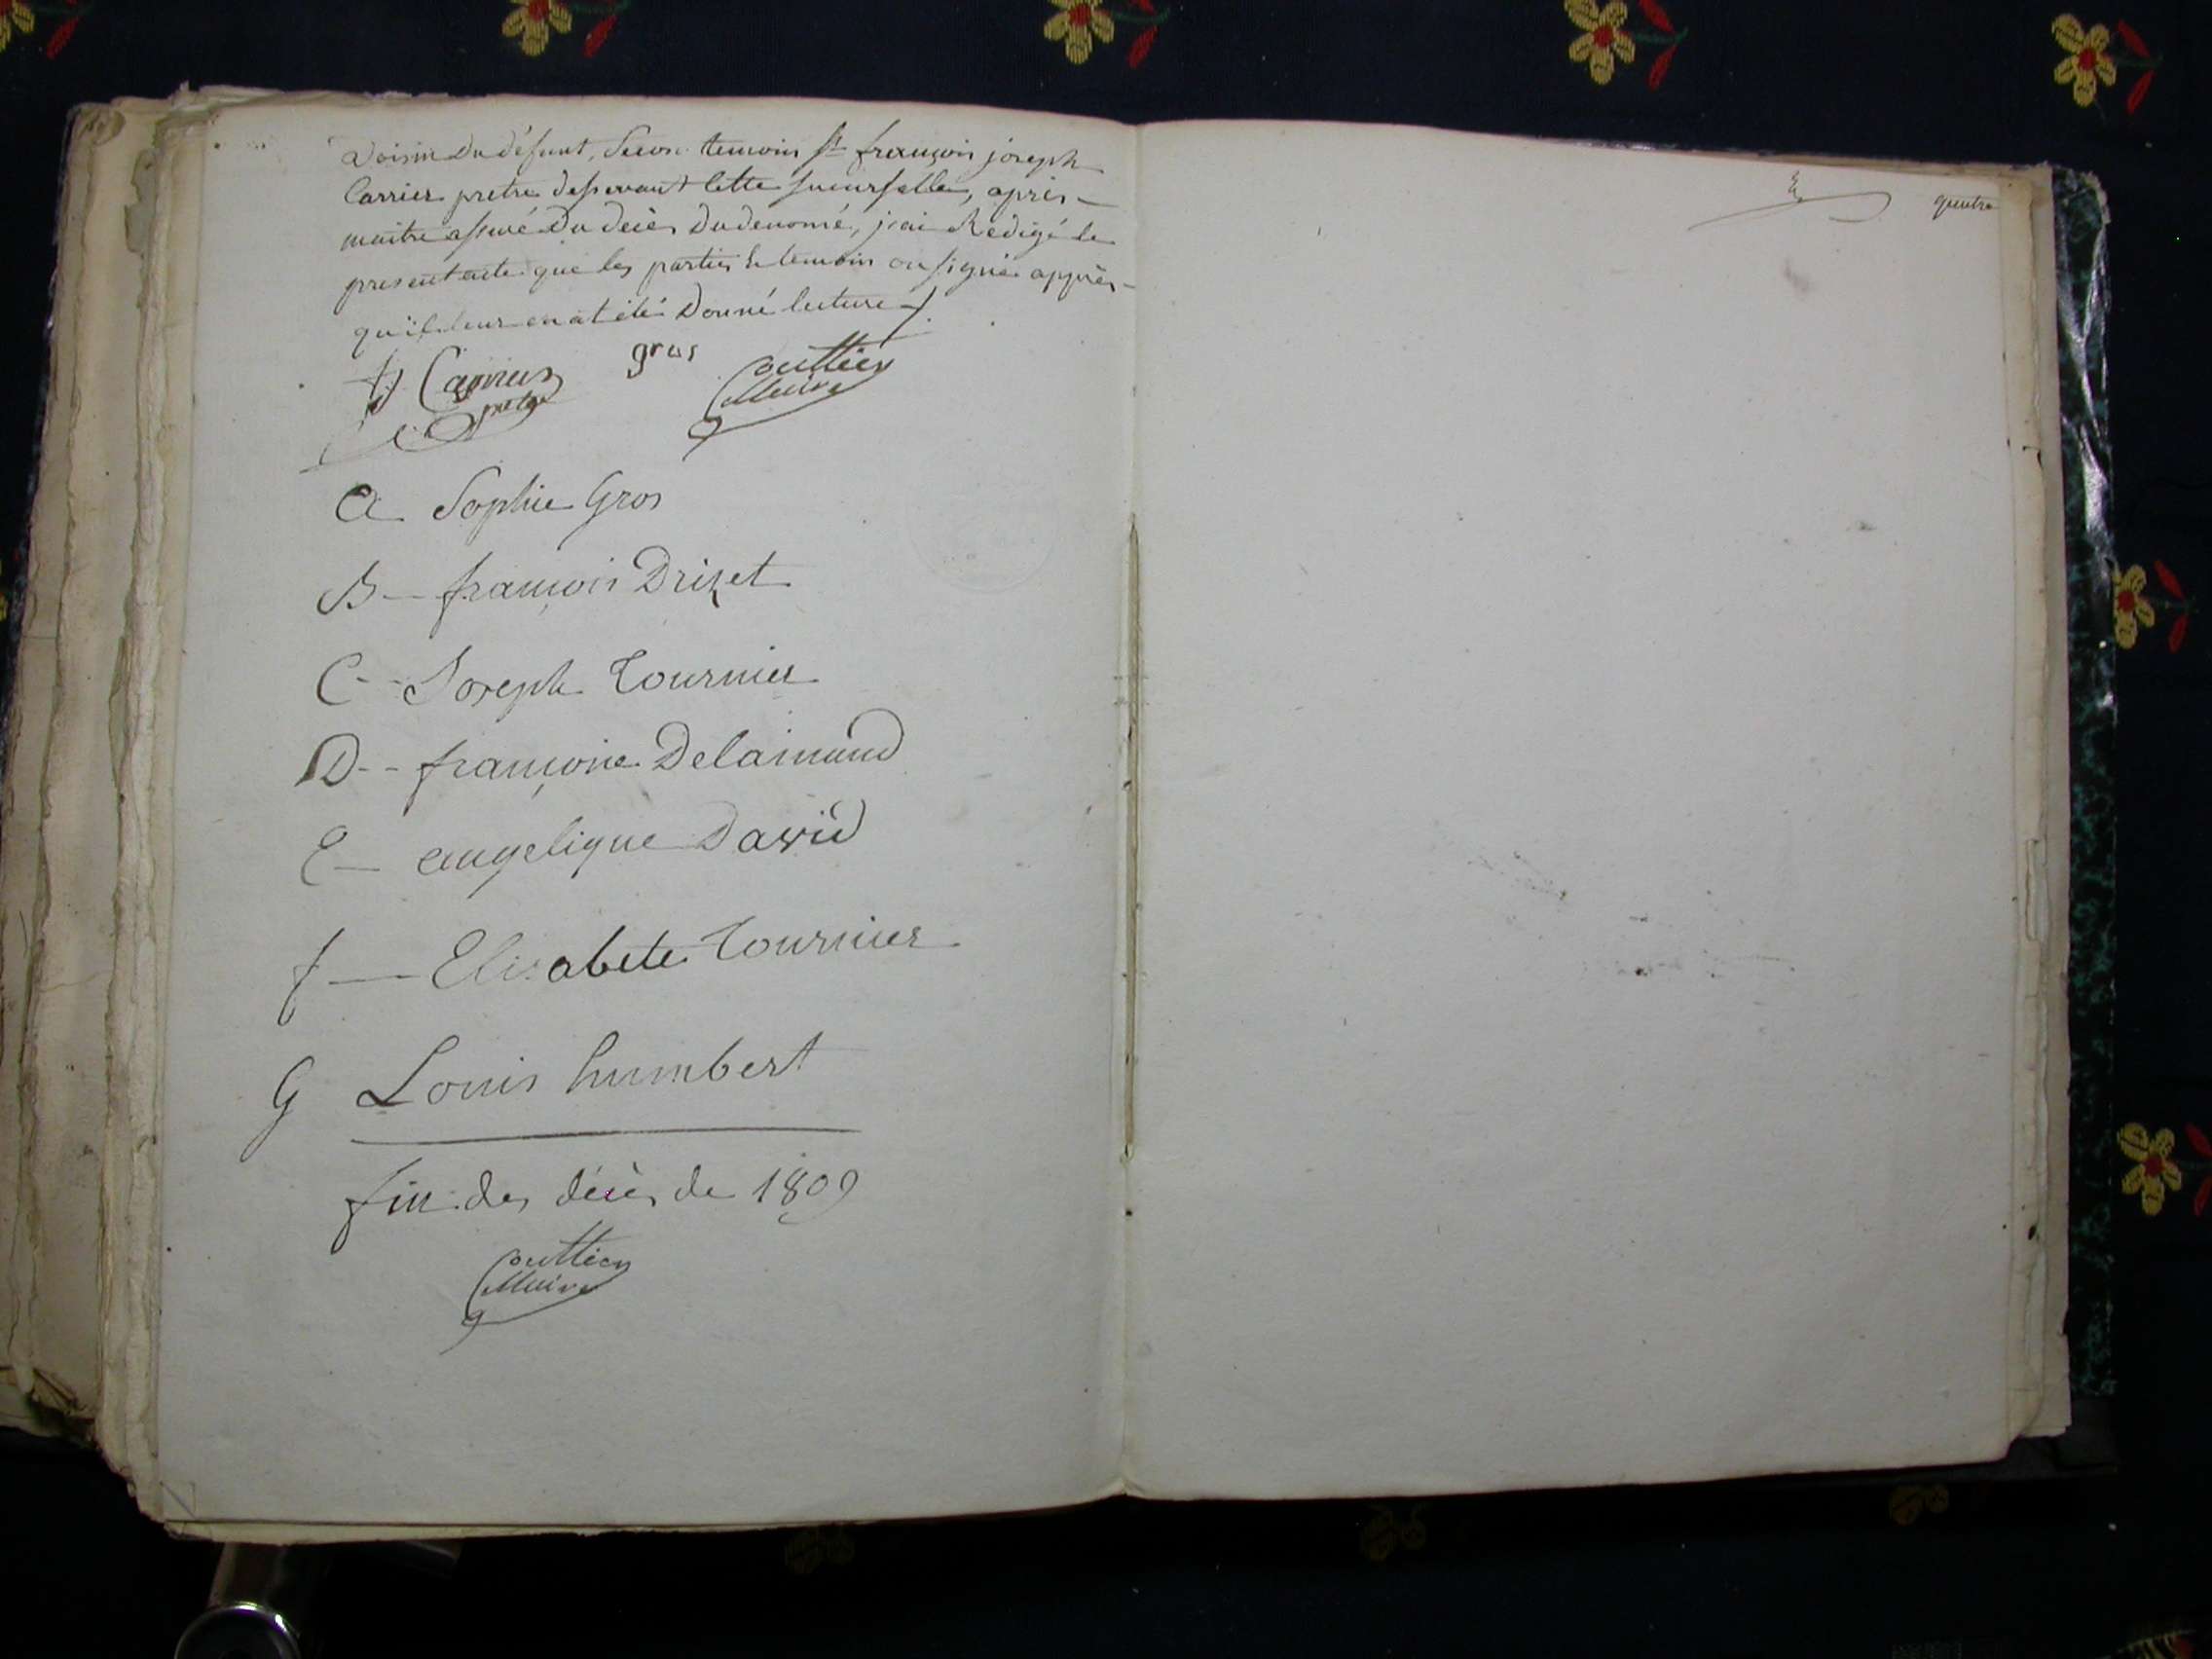 voisin du défunt, Secon temoin Sr françois joseph
Carrier pretre desservant cette sucursalle, après
maitre assuré du décès du denomé, j'ai Redigé le
present acte que les parties & temoin on signée apprès
qu'il leur en at été donné lecture
Carrier gros
pretre Maire
A Sophie Gros
B -- françois Drizet
C -- Joseph Tournier
D -- françoise Delaimand
E — angelique David
f — Elisabete Tournier
G Louis humbert
fin des décès de 1809
Maire
quatre